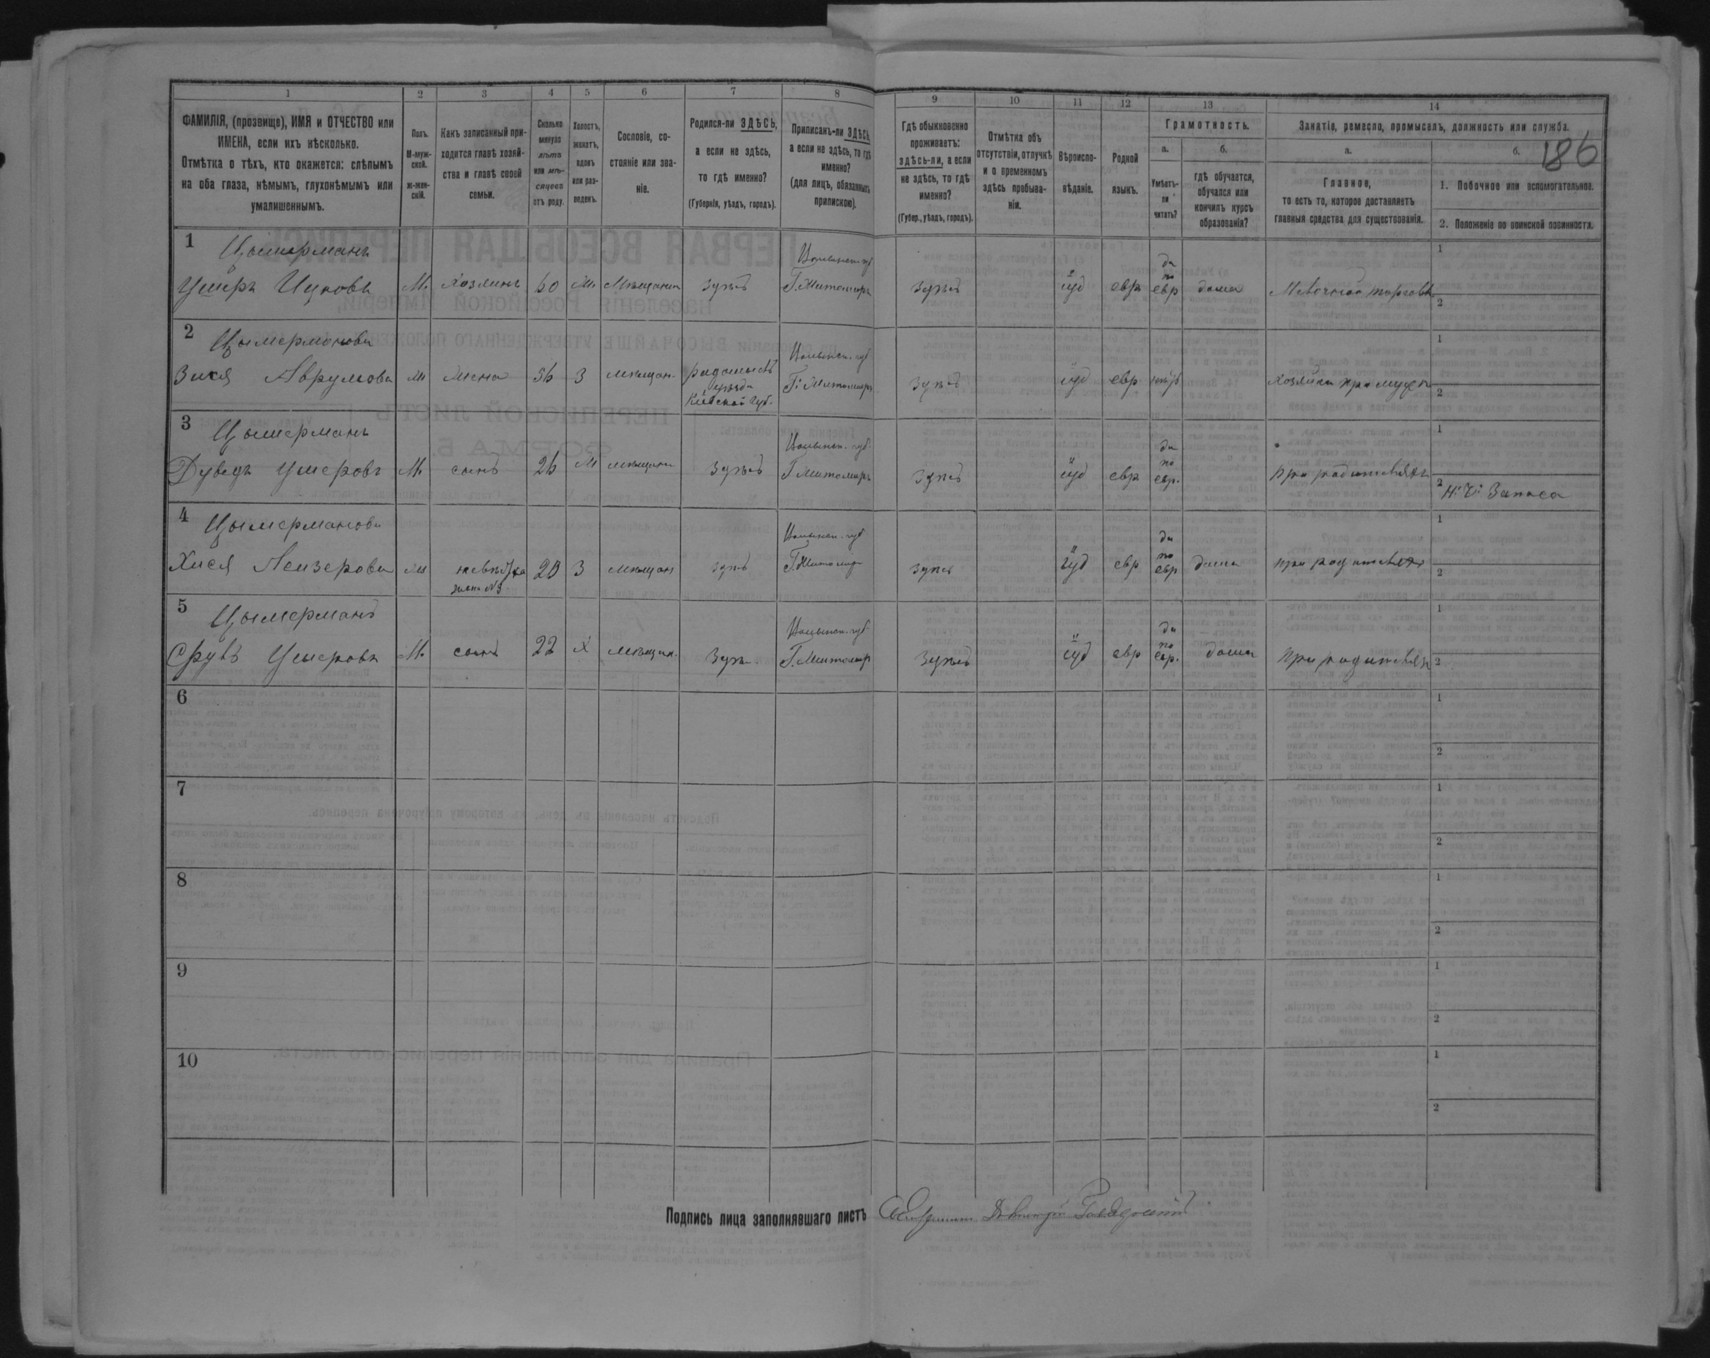 1 2 3 4 5 6 7 8 9 10 11 12 13 14
ФАМИЛІЯ, (прозвище), ИМЯ и ОТЧЕСТВО или
ИМЕНА, если ихъ нѣсколько.
Отмѣтка о тѣхъ, кто окажется: слѣпымъ
на оба глаза, нѣмымъ, глухонѣмымъ или
умалишеннымъ.
Полъ.
М-муж-
ской.
ж-жен-
скій.
Какъ записанный при-
ходится главѣ хозяй-
ства и главѣ своей
семьи.
Сколько
минуло
лѣтъ
или мѣ-
сяцевъ
отъ роду.
Холостъ,
женатъ,
вдовъ
или раз-
веденъ.
Сословіе, со-
стояніе или зва-
ніе.
Родился-ли ЗДѢСЬ,
а если не здѣсь,
то гдѣ именно?
(Губернія, уѣздъ, городъ).
Приписанъ-ли ЗДѢСЬ,
а если не здѣсь, то гдѣ
именно?
(для лицъ, обязанныхъ
припискою).
Гдѣ обыкновенно
проживаетъ:
здѣсь-ли, а если
не здѣсь, то гдѣ
именно?
(Губер., уѣздъ, городъ).
Отмѣтка объ
отсутствіи, отлучкѣ
и о временномъ
здѣсь пребыва-
ніи.
Вѣроиспо-
вѣданіе.
Родной
языкъ.
Грамотность.
а.
Умѣетъ-
ли
читать?
б.
гдѣ обучается,
обучался или
кончилъ курсъ
образованія?
Занятіе, ремесло, промыселъ, должность или служба.
186
а.
Главное,
то есть то, которое доставляетъ
главныя средства для существованія.
б.
1. Побочное или вспомогательное.
2. Положеніе по воинской повинности.
1
Цымерманъ
Умеръ Ицковъ М. Хозяинъ 60 М. Мѣщанин здѣсь
Г. Житомиръ
здѣсь іуд евр
да
по
евр
дома
1
2
2
Цымерманова
Зися Аврумова м жена 56 З мѣщан.
уѣзда
Кіевской губ.
Волынск. губ
Г. Житомиръ
здѣсь іуд евр хозяйка при мужѣ
1
2
3
Цымерманъ
Дувидъ Умеровъ М. сынъ 26 М мѣщанин здѣсь
Волынск. губ
Г. Житомиръ
здѣсь іуд евр
да
по
евр.
при родителяхъ
1
2 Запаса
4
Цымерманова
Хися Лейзерова м невѣстка
жена №3
З мѣщан здѣсь
Волынск. губ
Г. Житомир
здѣсь іуд евр
да
по
евр
дома при родителях
1
2
5
Цымерманъ
Срулъ Умеровъ М. сынъ 22 Х мѣщан. здѣсь
Волынск. губ.
Г. Житомир
здѣсь іуд евр
да
по
евр.
дома при родителях
1
2
6
1
2
7
1
2
8
1
2
9
1
2
10
1
2
Подпись лица заполнявшаго листъ